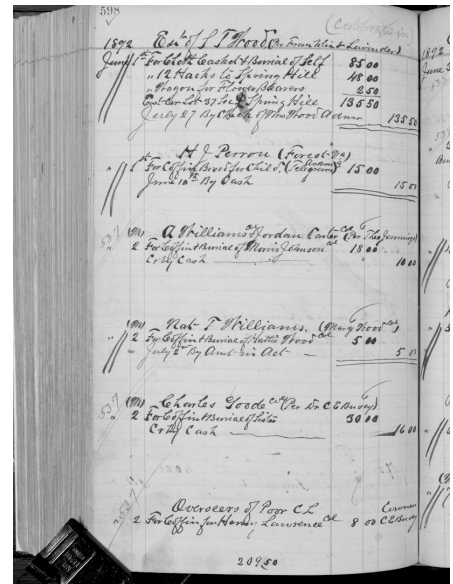 598
(Certificate in)
1892 Est. of S T Wood (Per Franklin & Lavinder)
June 1st For Cloth Casket & Burial of Self 85 00
" 12 Hacks to Spring Hill 48 00
" Wagon for Flower Bearers 2 50
Lot 37 Sec 2 Spring Hill 135 50
July 27 By Check of Mrs Wood Admr 135 50
H J Perrow (Forest Va)
" 1st For Coffin Boxed for Child. (Telegram) 15 00
June 10th By Cash 15 00
537 (M) A Williams & Jordan Carter Col (Per Theo Jennings)
" 2 For Coffin & Burial of Morris Johnson Col 18 00
Cr By Cash 10 00
(M) Nat T Williams. (Mary Wood Col)
" 2 For Coffin & Burial of Hattie Wood Col 5 00
July 2nd By Amt in Act 5 00
537 (M) Charles Goode Col (Per Dr C E Busey)
" 2 For Coffin & Burial of Sister 30 00
Cr By Cash 16 00
537 Overseers of Poor C L Coroner
" 2 For Coffin for Henry Lawrence Col 8 00 C E Busey
209 50
1892
June